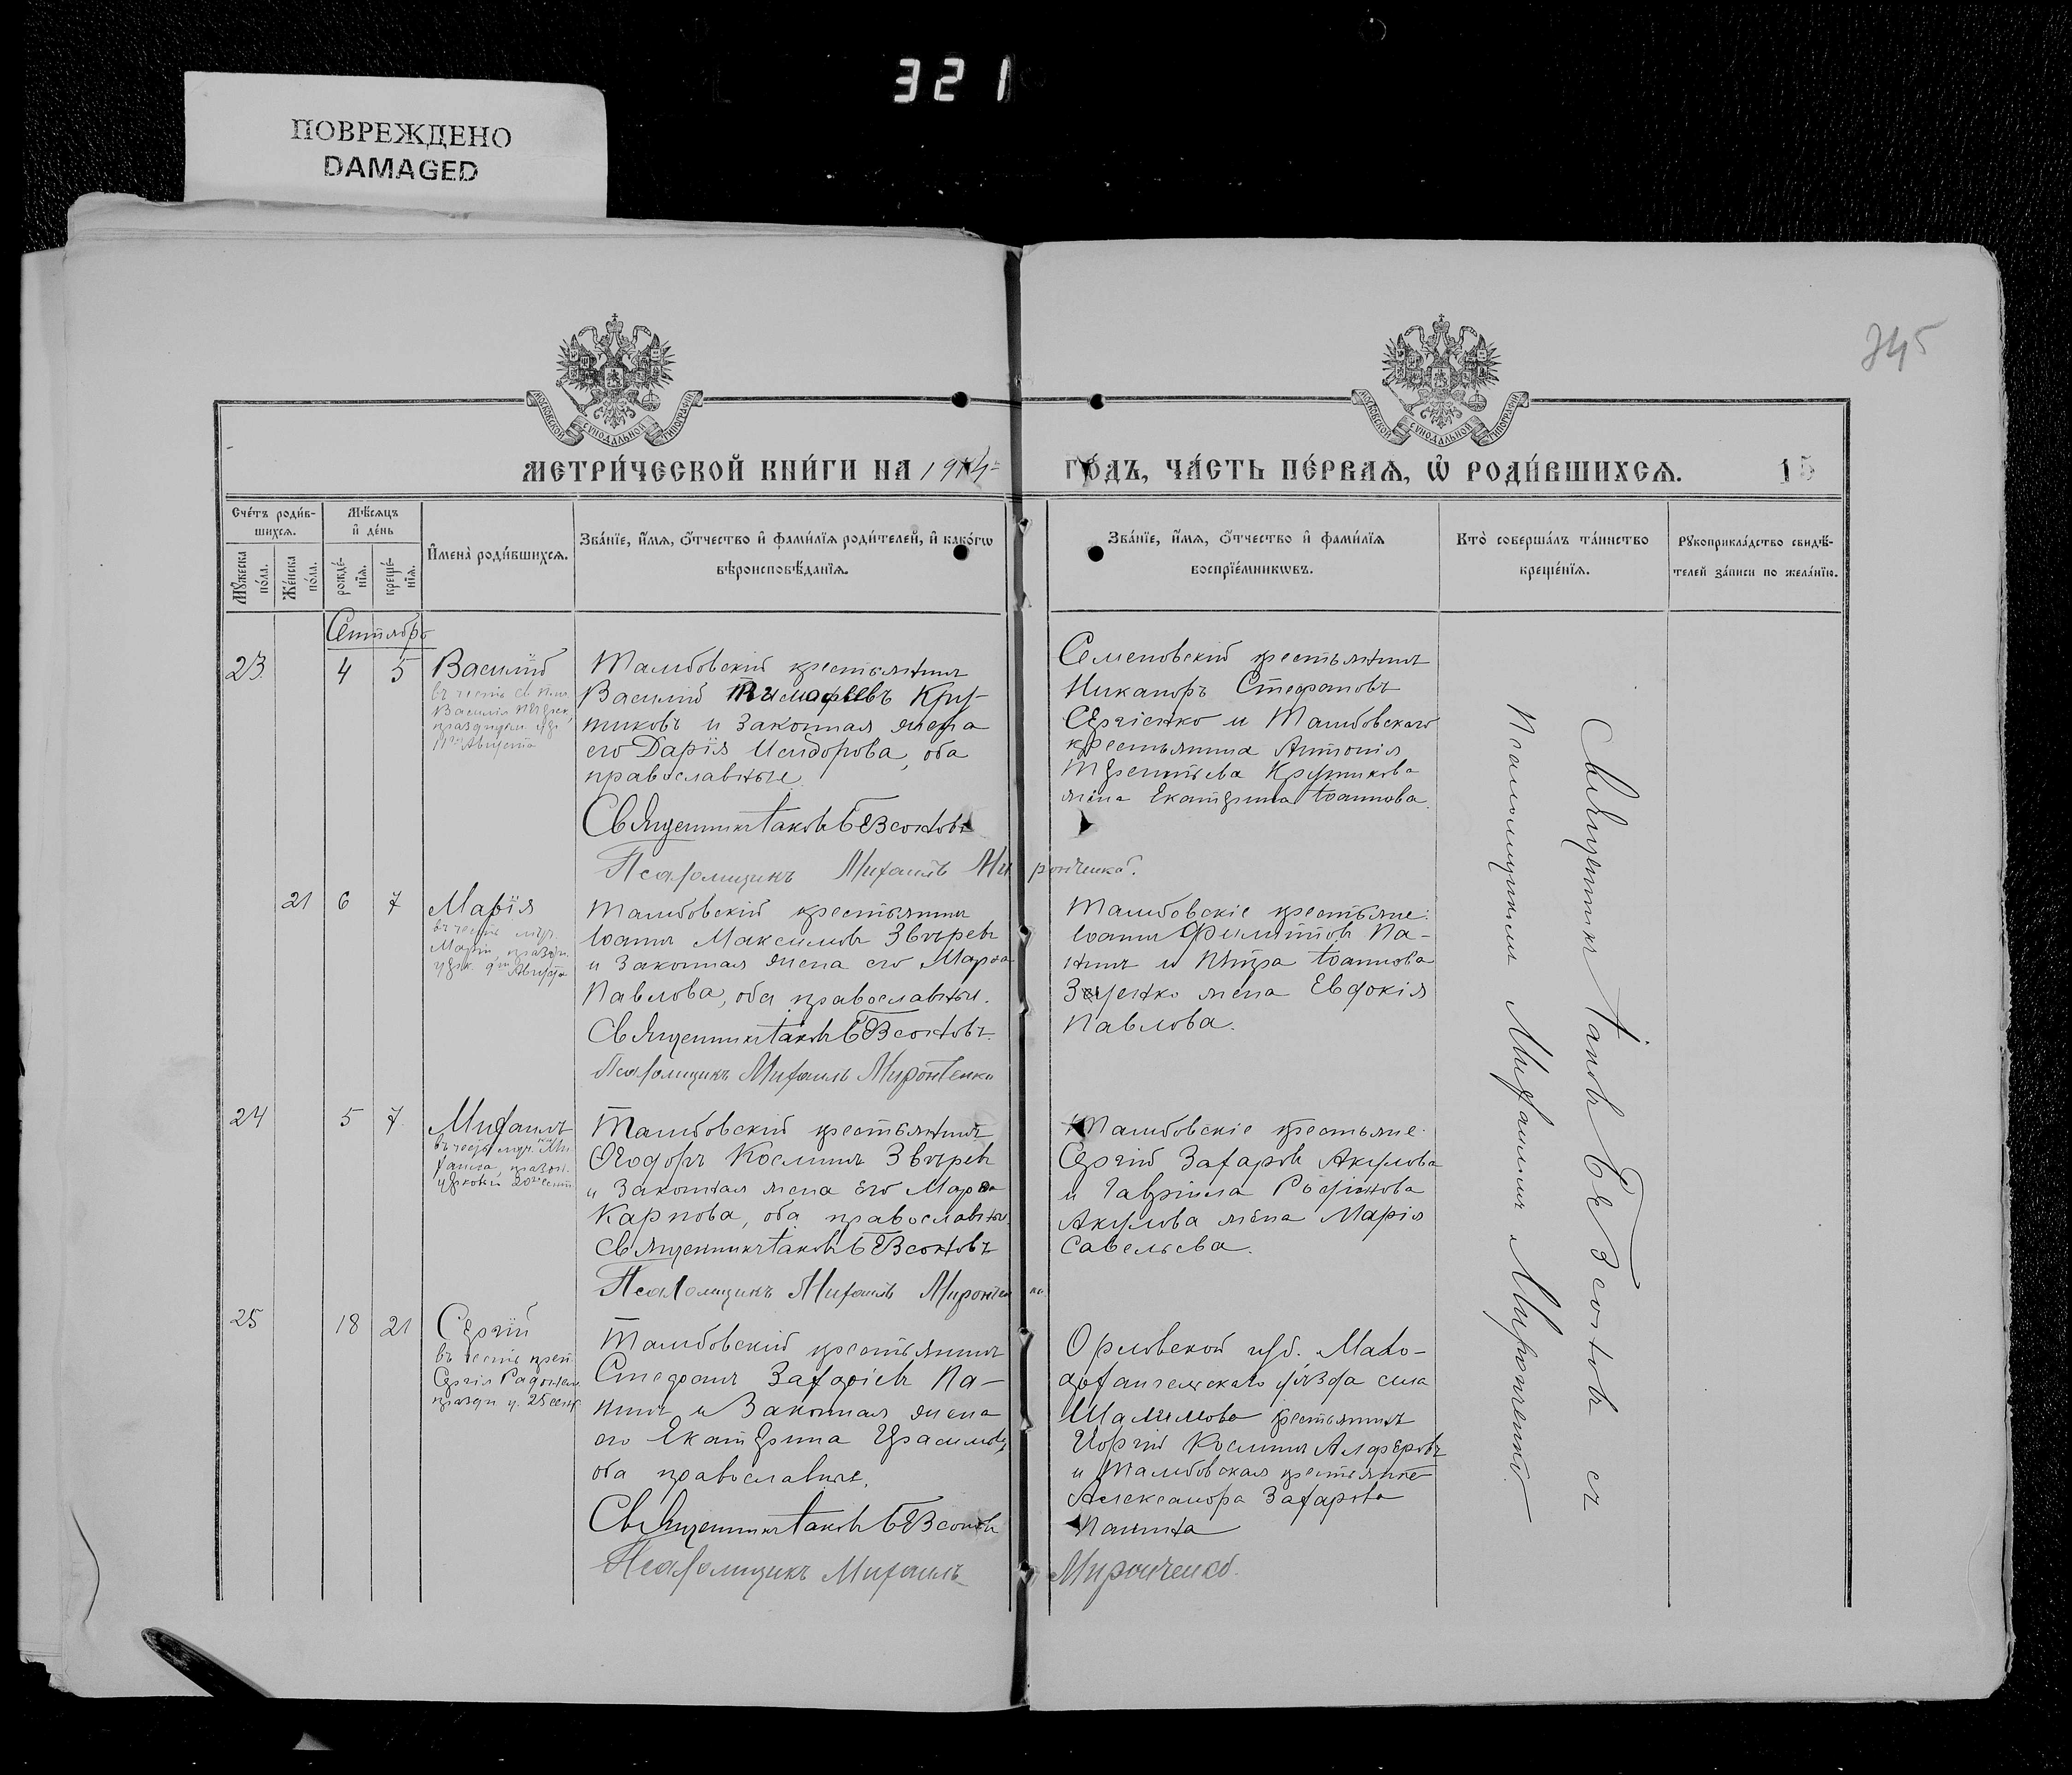 321
ПОВРЕЖДЕНО
DAMAGED
345
МОСКОВСКОЙ СѴНОДАЛЬНОЙ ТИПОГРАФІИ
МОСКОВСКОЙ СѴНОДАЛЬНОЙ ТИПОГРАФІИ
МЕТРИ́ЧЕСКОЙ КНИ́ГИ НА 1914
ГО́ДЪ, ЧА́СТЬ ПЕ́РВАѦ, Ѡ҆ РОДИ́ВШИХСѦ.
15
Сче́тъ роди́в-
шихсѧ.
Мꙋ́жеска по́ла.
Же́нска по́ла.
Мѣ́сѧцъ
и҆ де́нь
рожде́-
нїѧ.
креще́-
нїѧ.
И҆мена̀ роди́вшихсѧ.
Зва́нїе, и҆́мѧ, ѻ҆́тчество и҆ фами́лїѧ роди́телей, и҆ како́гѡ
вѣроисповѣ́данїѧ.
Зва́нїе, и҆́мѧ, ѻ҆́тчество и҆ фами́лїѧ
воспрїе́мникѡвъ.
Кто̀ соверша́лъ та́инство
креще́нїѧ.
Рꙋкоприкла́дство свидѣ́-
телей за́писи по жела́нїю.
Сентябрь
23
4
5
Василій
въ честь св.
Василія
праздуем.
11го Августа
Тамбовскій крестьянинъ
Василій Тимофеевъ Кру-
тиковъ и законная жена
его Дарія Исидорова, оба
православные.
Священникъ Іаковъ Безсоновъ
Псаломщикъ Михаилъ Миронченко.
Семеновскій крестьянинъ
Никаноръ Стефановъ
Сергіенко и Тамбовскаго
крестьянина Антонія
Терентьева Крутикова
жена Екатерина Іоаннова.
21
6
7
Марія
въ честь муч.
Маріи празд.
церк. 9го Августа
Тамбовскій крестьянинъ
Іоаннъ Максимовъ Звѣревъ
и законная жена его Марѳа
Павлова, оба православны.
Священникъ Іаковъ Безсоновъ.
Псаломщикъ Михаилъ Миронченко
Тамбовскіе крестьяне:
Іоаннъ Филиповъ Па-
нинъ и Петра Іоаннова
жена Евдокія
Павлова.
24
5
7
Михаилъ
въ честь муч. Ми-
хаила, празд.
церковью 20го сент.
Тамбовскій крестьянинъ
Ѳеодоръ Косминъ Звѣревъ
и законная жена его Марѳа
Карпова, оба православны.
Священникъ Іаковъ Безсоновъ
Псаломщикъ Михаилъ Миронченко
Тамбовскіе крестьяне:
Сергій Захаровъ Акулова
и Гавріила
Акулова жена Марія
Савельева.
25
18
21
Сергій
въ честь преп.
Сергія Радонеж.
празд. ц. 25 сент.
Тамбовскій крестьянинъ
Стефанъ Захаріевъ Па-
нинъ и законная жена
его Екатерина Герасимова,
оба православные.
Священникъ Іаковъ Безсоновъ
Псаломщикъ Михаилъ Миронченко.
Орловской губ. Мало-
архангельскаго уѣзда села
крестьянинъ
Георгій Косминъ Алферовъ
и Тамбовская крестьянка
Александра Захарова
Панина
Священникъ Іаковъ Безсоновъ съ
Псаломщикомъ Михаиломъ Миронченко.